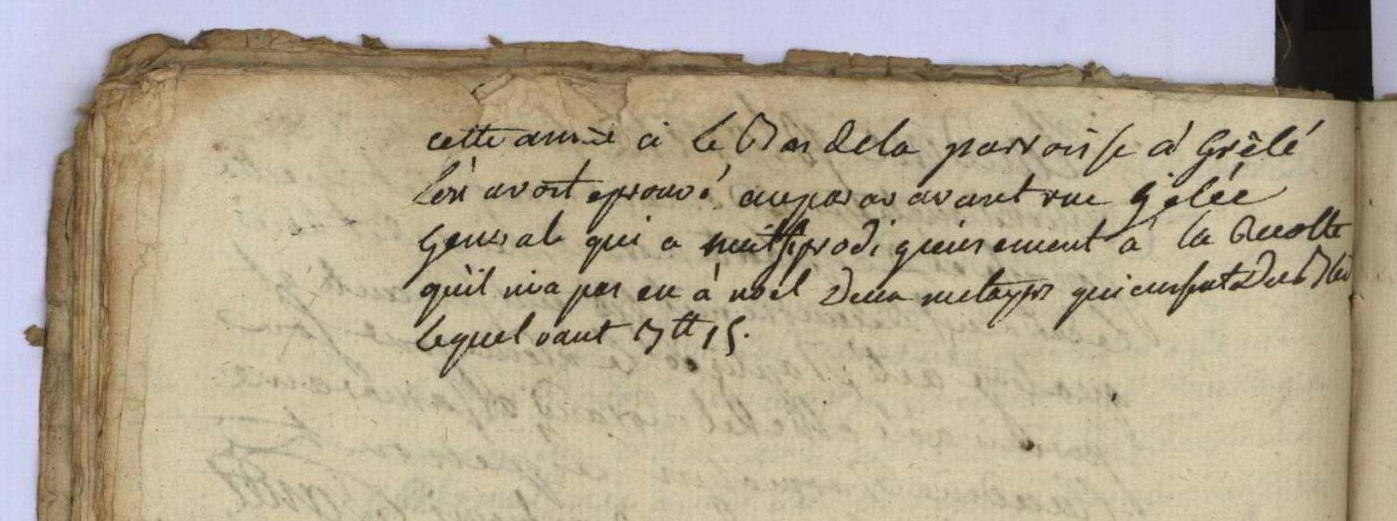 cette année ci le Bas de la parroisse a Grêlé
lon avoit eprouvé auparavavant une gelée
general qui a nuit si prodigieusement a la Recolte
qu'il ni a pas eu à noel deux metayers qui eussent du Bled
lequel vaut 7tt 15.